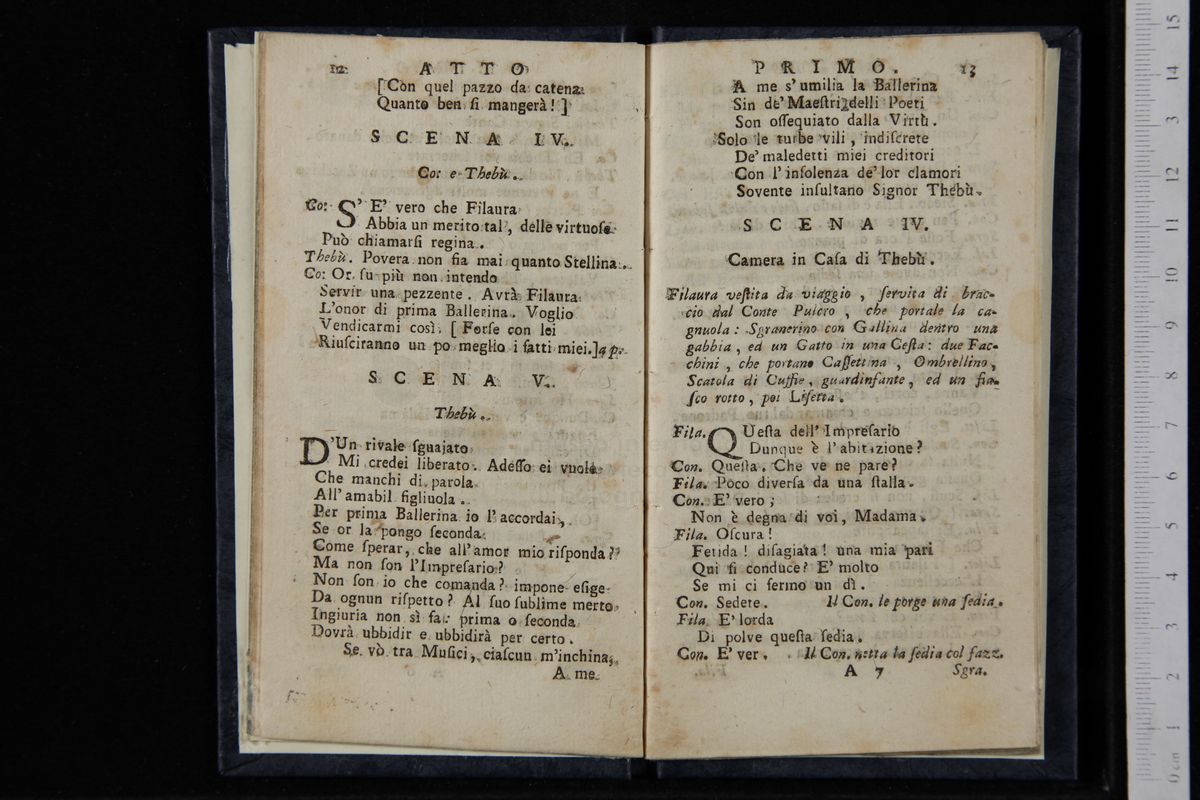 12 ATTO
[Con quel pazzo da catena
Quanto ben ſi mangerà! ]
SCENA IV.
Co: e Thebù.
Co: S' E' vero che Filaura
Abbia un merito tal, delle virtuoſe
Può chiamarſi regina.
Thebù. Povera non ſia mai quanto Stellina.
Co: Or ſu più non intendo
Servir una pezzente. Avrà Filaura
L'onor di prima Ballerina. Voglio
Vendicarmi così. [ Forſe con lei
Riuſciranno un po meglio i fatti miei.] a p.
SCENA V.
Thebù.
D'Un rivale ſguajato
Mi credei liberato. Adeſſo ei vuole
Che manchi di parola
All' amabil figliuola.
Per prima Ballerina io l'accordai,
Se or la pongo ſeconda
Come ſperar, che all'amor mio riſponda?
Ma non ſon l'Impreſario?
Non ſon io che comanda? impone eſige
Da ognun riſpetto? Al ſuo ſublime merto
Ingiuria non ſi fa: prima o ſeconda
Dovrà ubbidir e ubbidirà per certo.
Se vò tra Muſici, ciaſcun m'inchina,
A me
PRIMO. 13
A me s'umilia la Ballerina
Sin de' Maeſtri delli Poeti
Son oſſequiato dalla Virtù.
Solo le turbe vili, indiſcrete
De' maledetti miei creditori
Con l'inſolenza de' lor clamori
Sovente inſultano Signor Thebù.
SCENA IV.
Camera in Caſa di Thebù.
Filaura veſtita da viaggio, ſervita di brac-
cio dal Conte Pulcro, che portale la ca-
gnuola: Sgranerino con Gallina dentro una
gabbia, ed un Gatto in una Ceſta: due Fac-
chini, che portano Caſſettina, Ombrellino,
Scatola di Cuffie, guardinfante, ed un fia-
ſco rotto, poi Liſetta.
Fila. QUeſta dell' Impreſario
Dunque è l'abitazione?
Con. Queſta. Che ve ne pare?
Fila. Poco diverſa da una ſtalla.
Con. E' vero;
Non è degna di voi, Madama.
Fila. Oſcura!
Fetida! diſagiata! una mia pari
Qui ſi conduce? E' molto
Se mi ci fermo un dì.
Con. Sedete. Il Con. le porge una ſedia.
Fila E' lorda
Di polve queſta ſedia.
Con. E' ver. Il Con. netta la ſedia col fazz.
A 7 Sgra.
0 cm 1 2 3 4 5 6 7 8 9 10 11 12 13 14 15